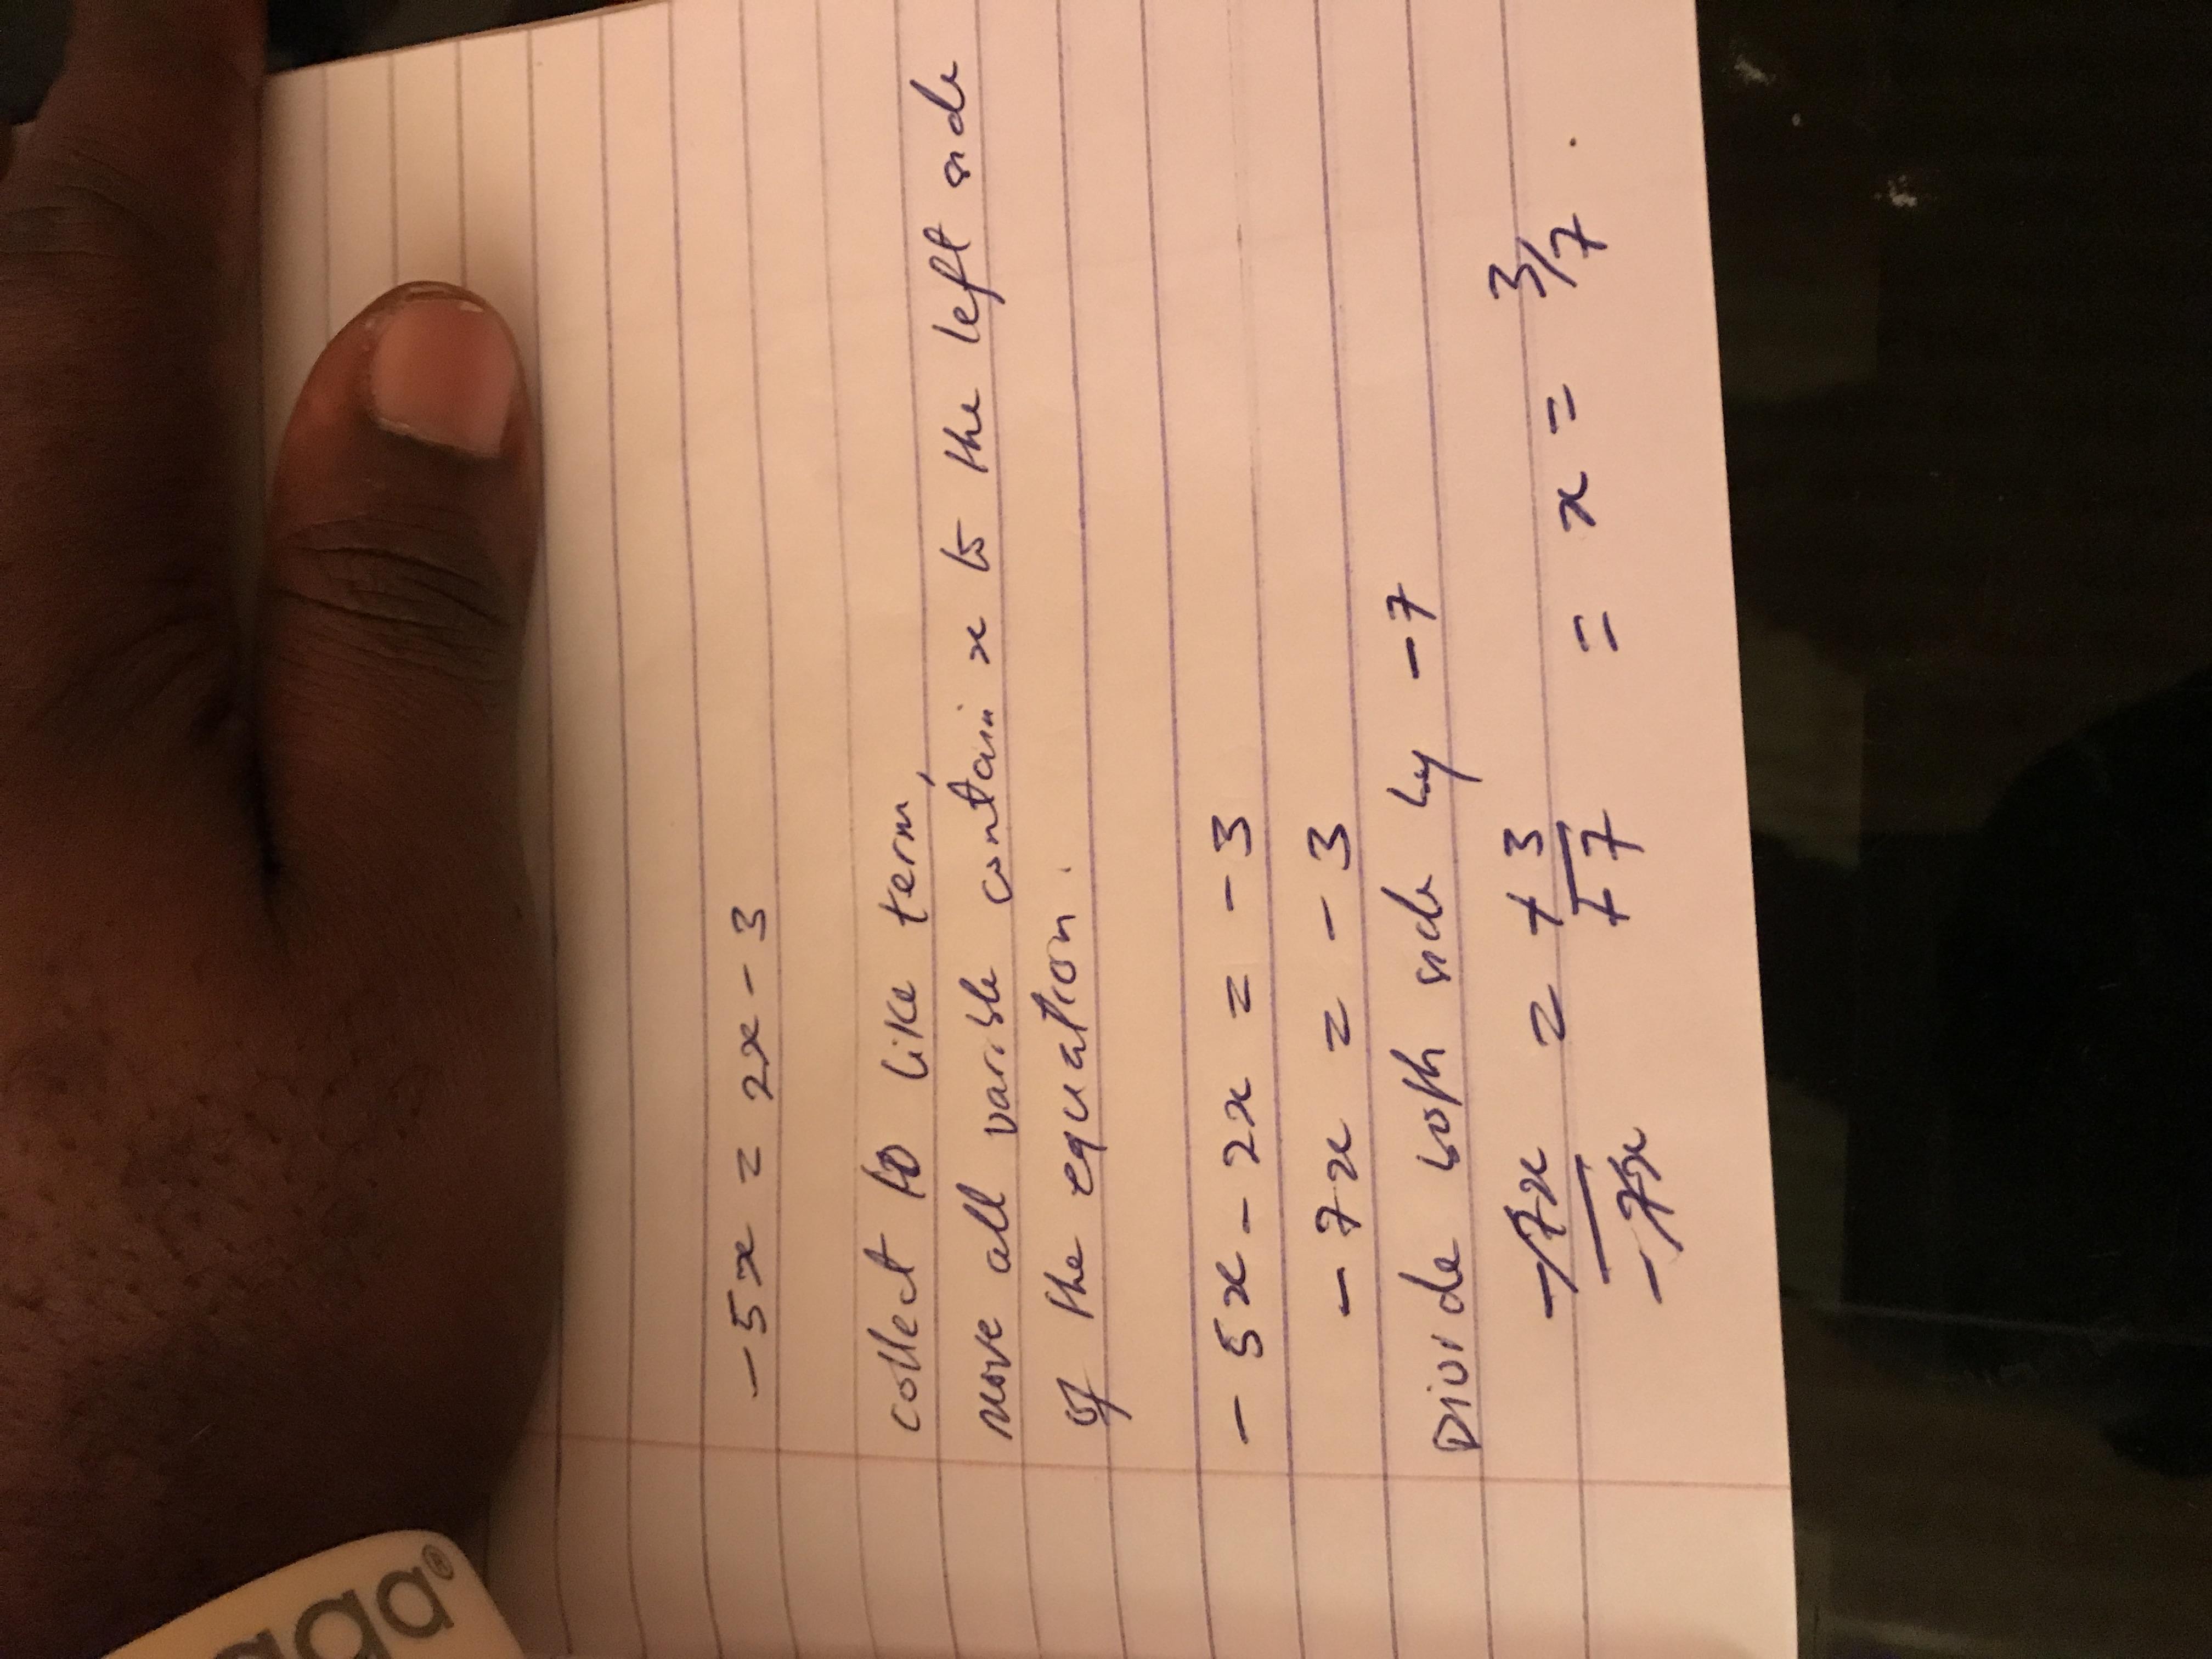 - 5x = 2x - 3
collect to like term,
move all varible contain x to the left side
of the equation.
- 5x - 2x = - 3
- 7x = - 3
Divide both side by - 7
-7x/-7x = +3/+7 = x = 3/7.
aga®